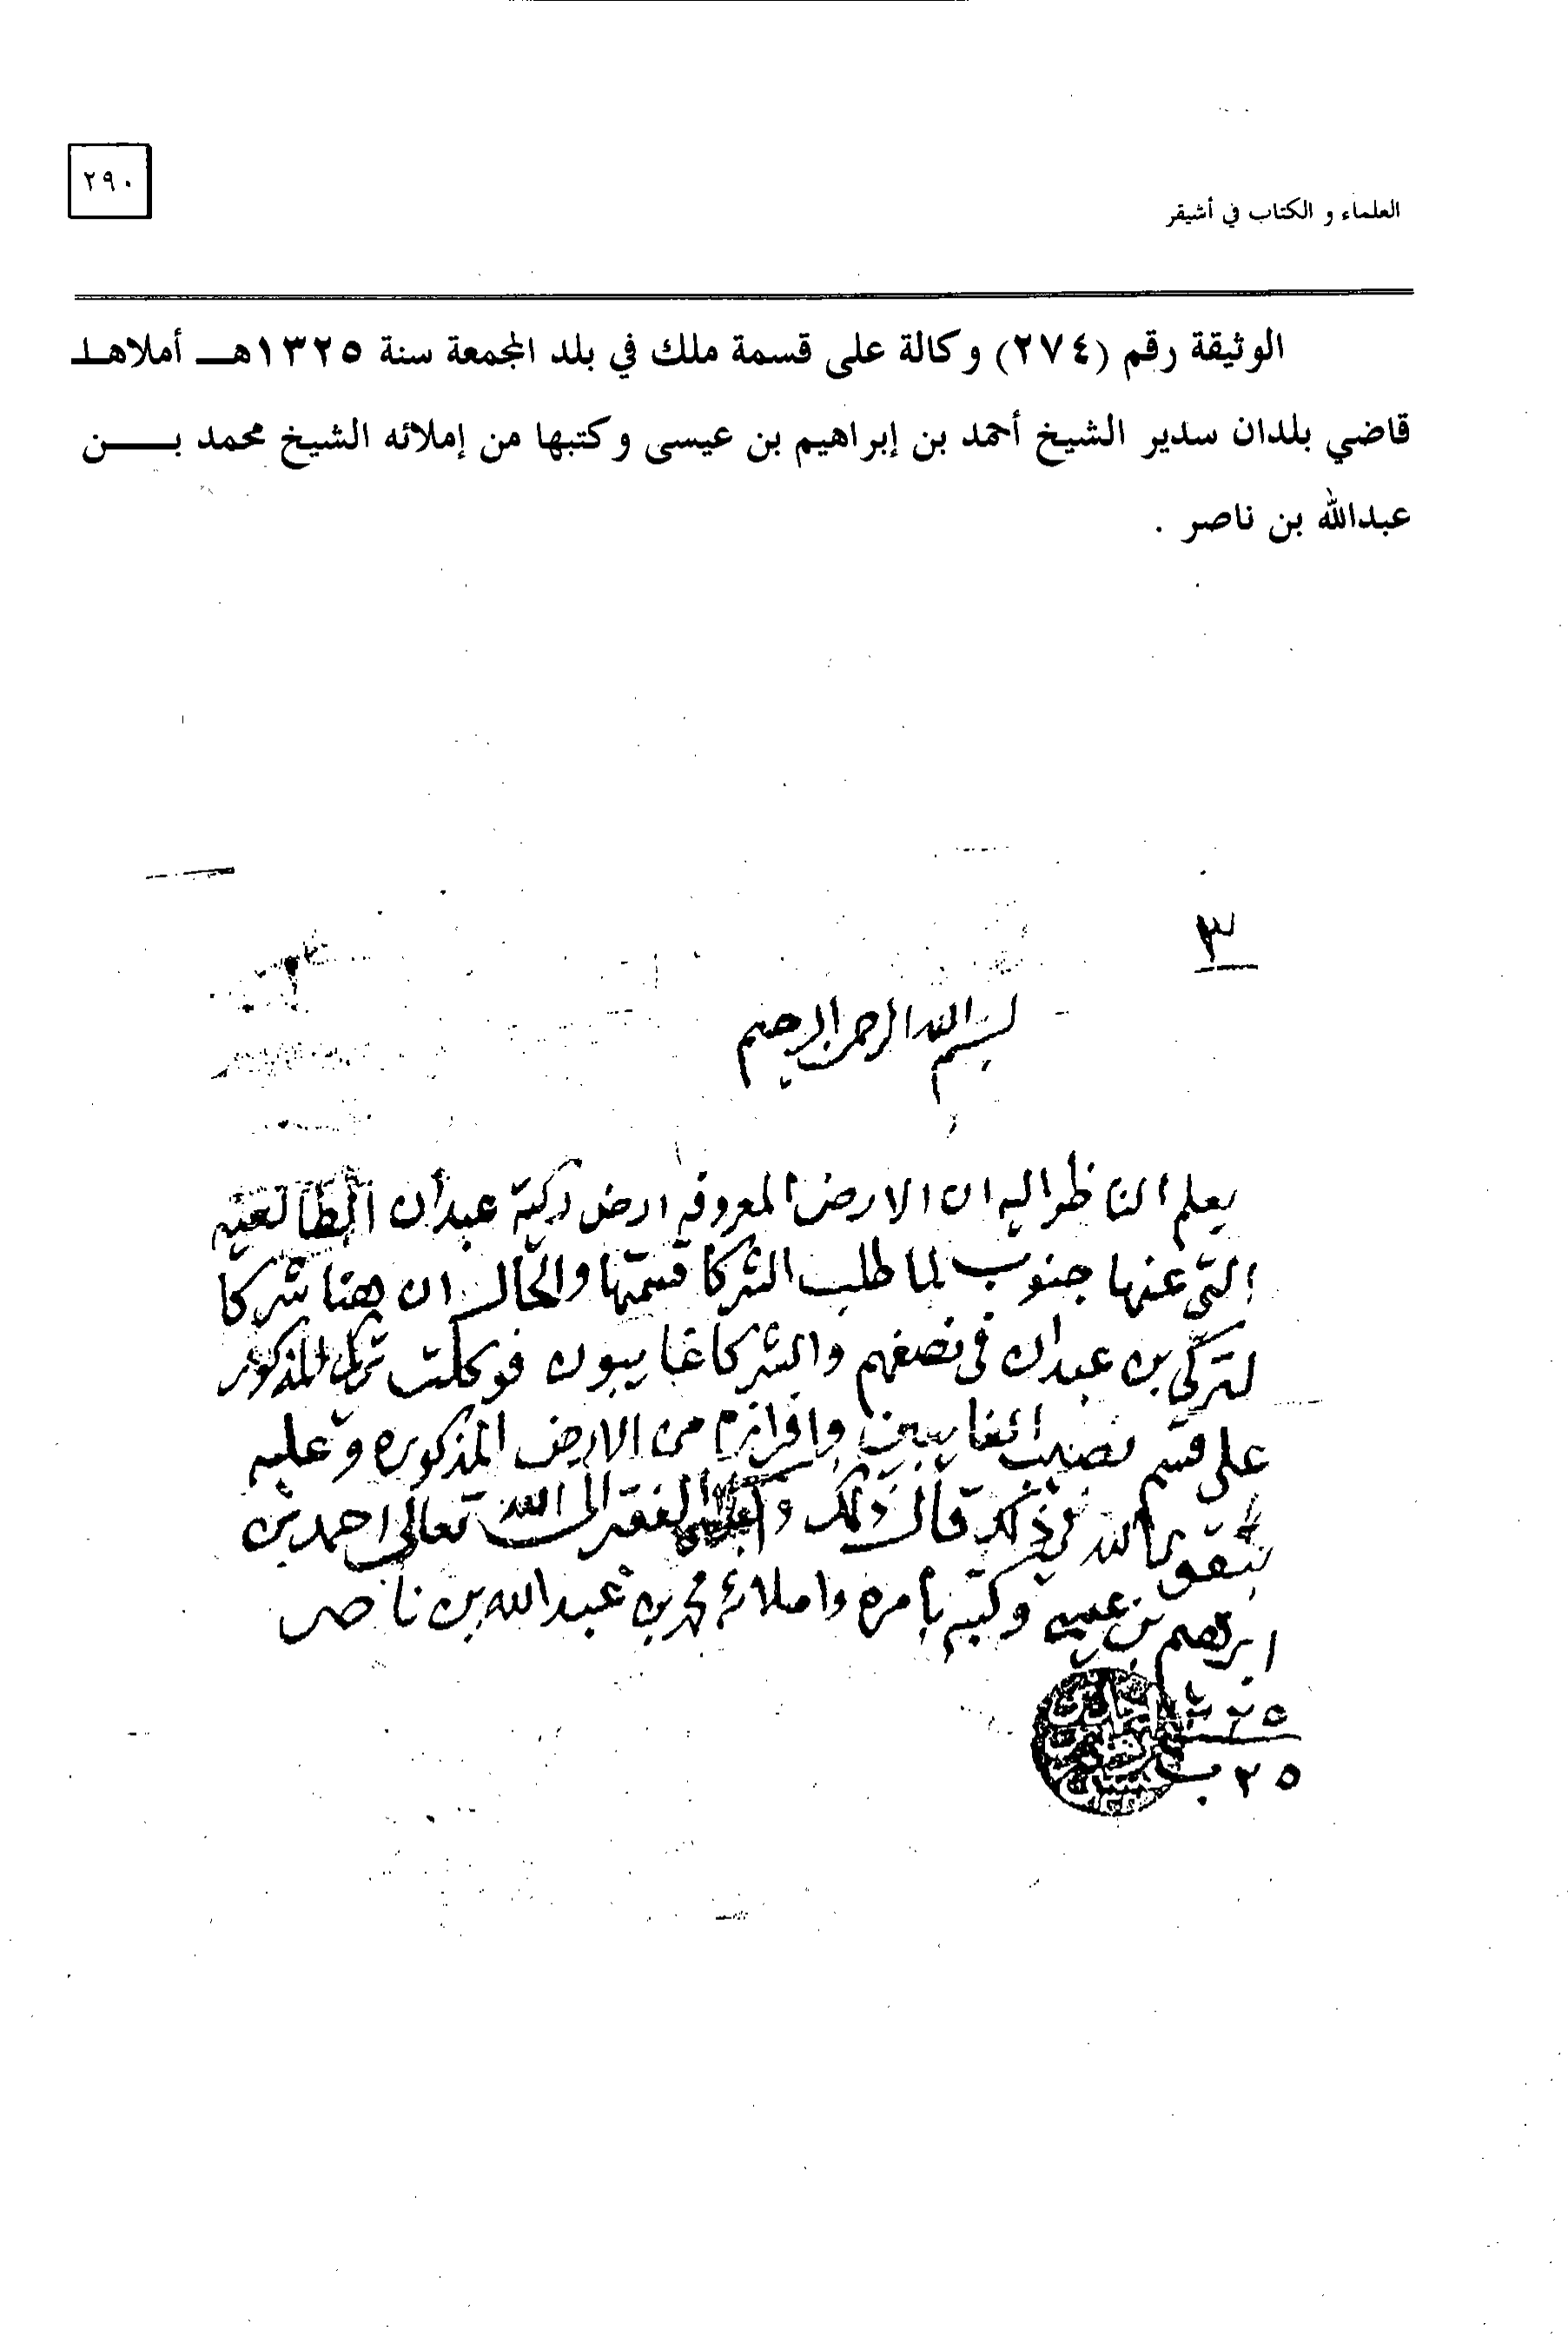 ٢٩٠
العلماء و الكتاب في أشيقر
الوثيقة رقم (٢٧٤) وكالة على قسمة ملك في بلد المجمعة سنة ١٣٢٥هــ أملاهــا
قاضي بلدان سدير الشيخ أحمد بن إبراهيم بن عيسى وكتبها من إملائه الشيخ محمد بـــــن
عبدالله بن ناصر .
٣
بسم الله الرحمن الرحيم
يعلم الناظر اليه ان الارض المعروفه ارض ركية عبدان
التي عنها جنوب لما طلب الشركا قسمتها والحال ان هنا شركا
لتركي بن عبدان في نصفهم والشركا غايبون فوكلت تركي المذكور
على قسم نصيب الغايبين وافرازه من الارض المذكوره وعليه
بتقوى الله في ذلك قال ذلك واملاه الفقير الى الله تعالى احمد بن
ابرهيم بن عيسى وكتبه بامره واملائه محمد بن عبدالله بن ناصر